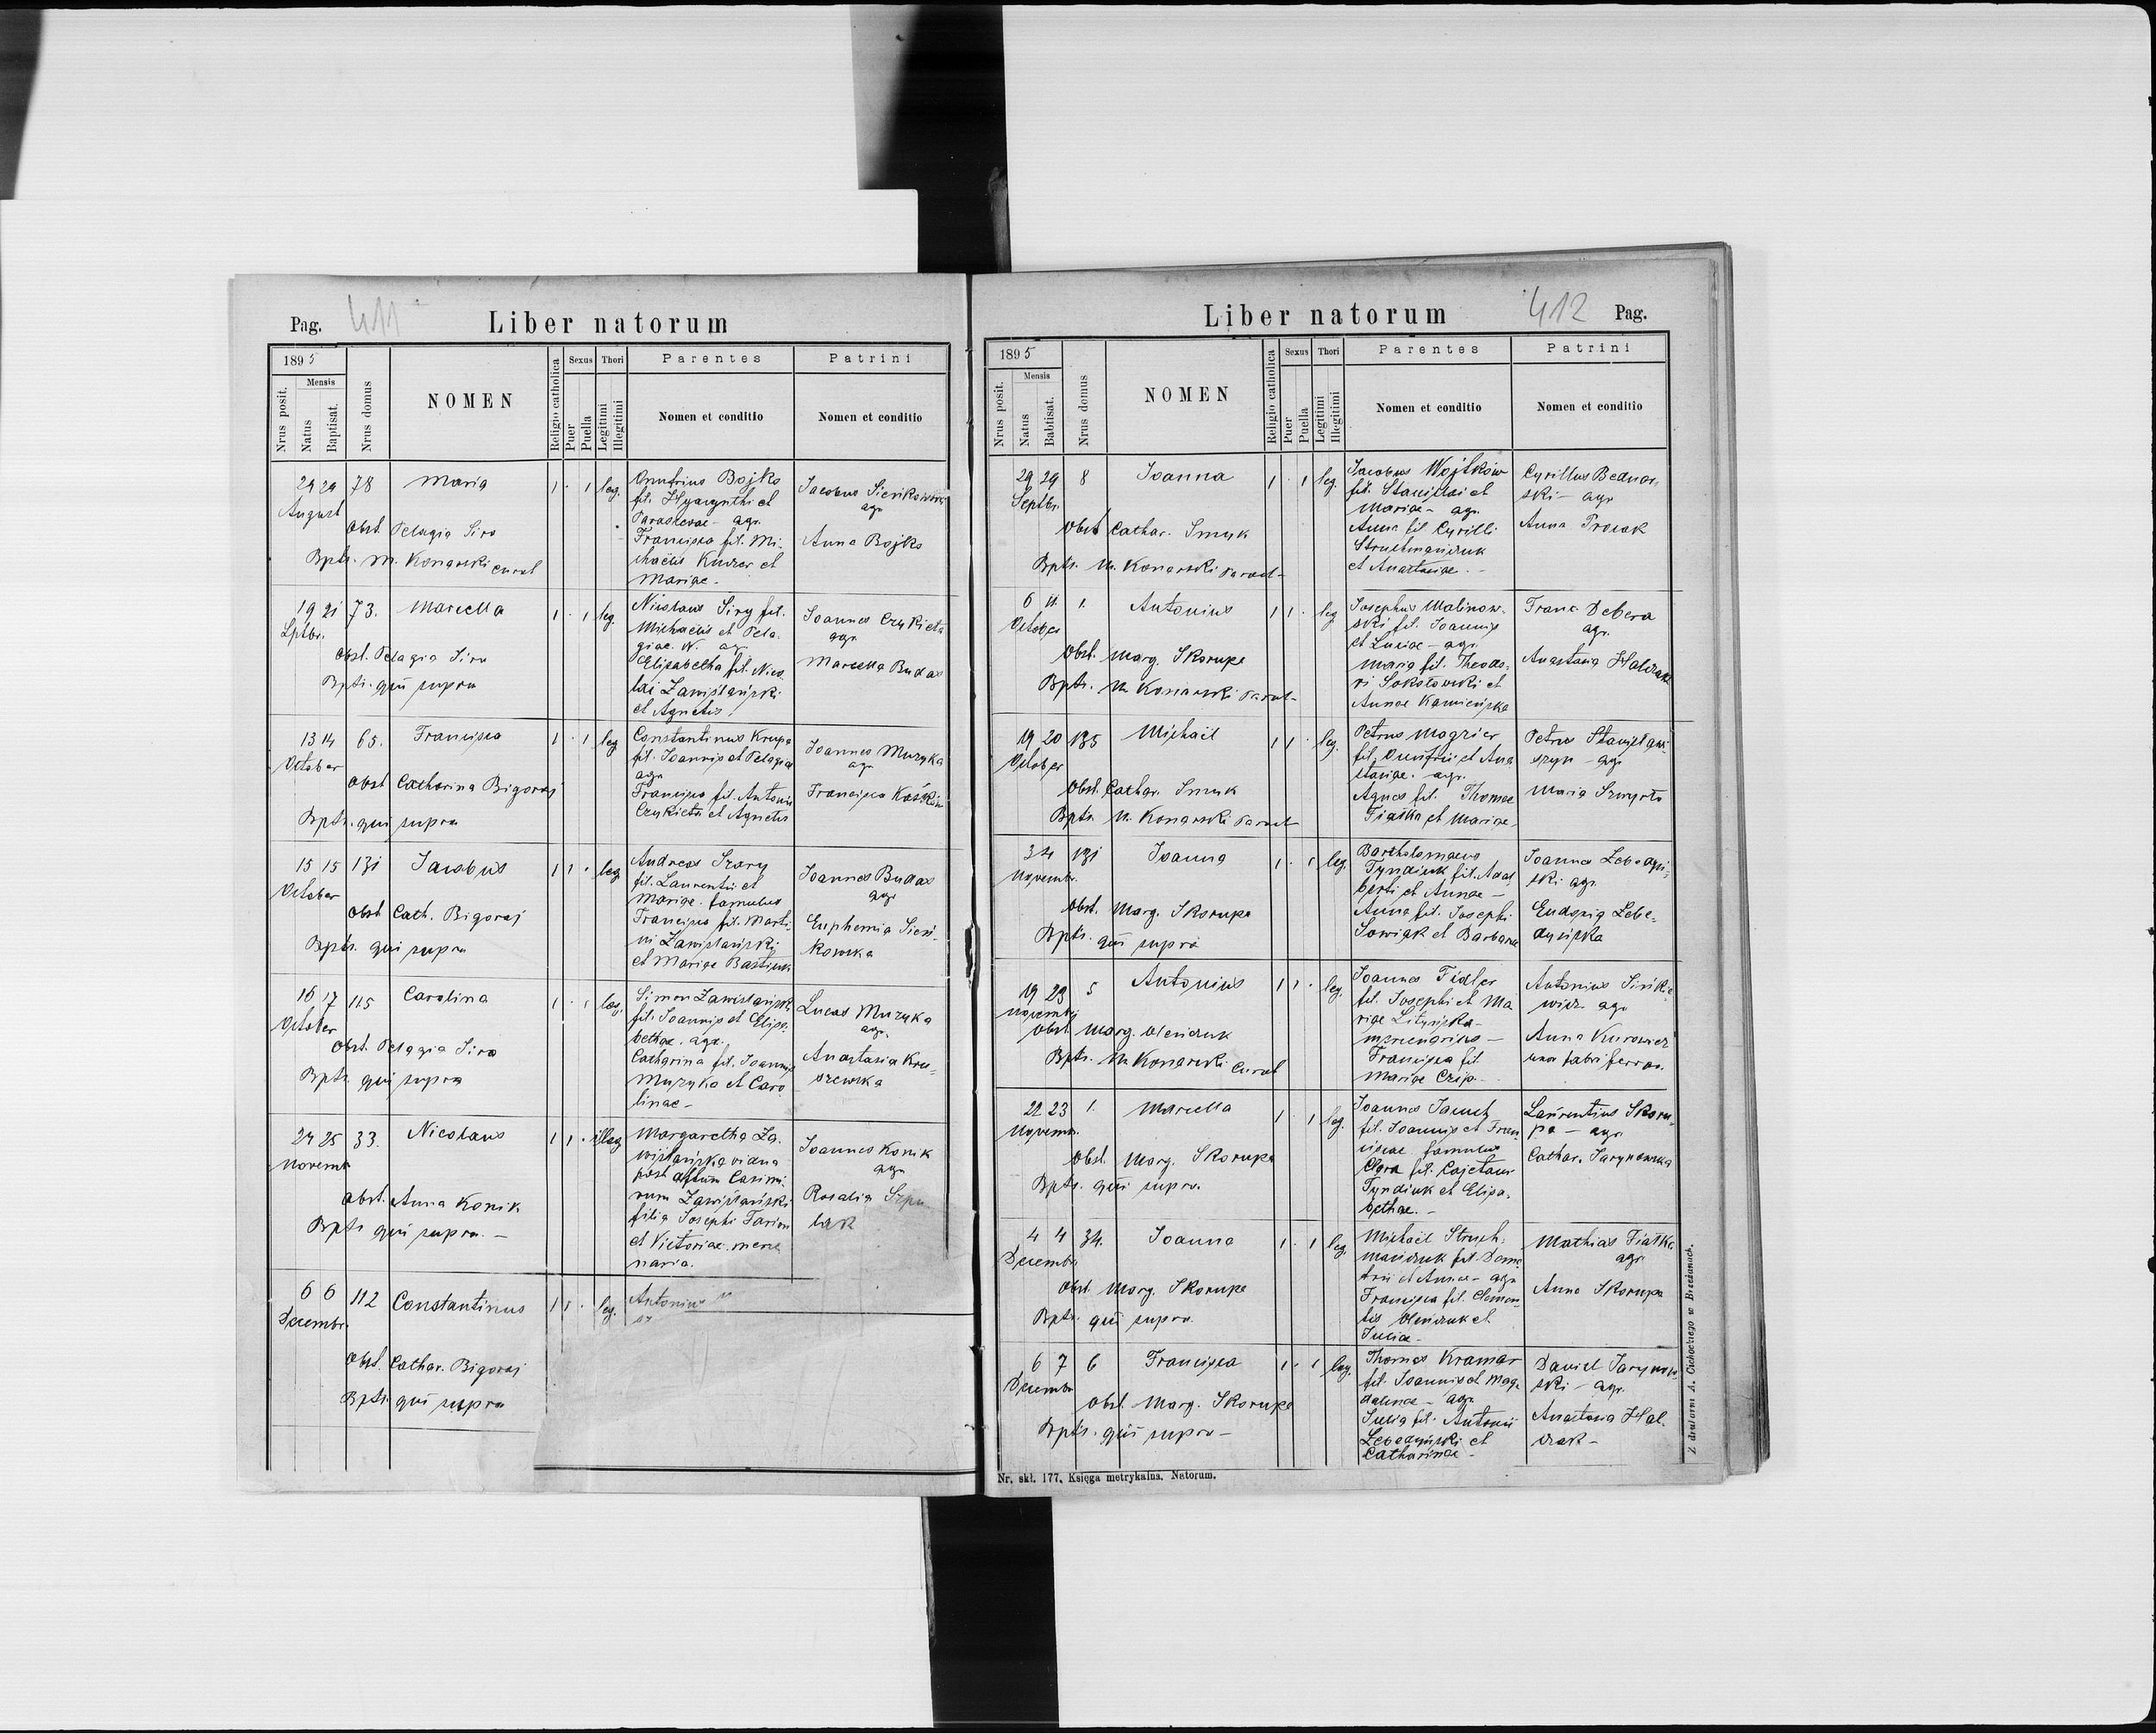 Pag. 411 Liber natorum
1895
Nrus posit.
Mensis
Natus
Baptisat.
Nrus domus
NOMEN
Religio catholica
Sexus
Puer
Puella
Thori
Legitimi
Illegitimi
Parentes
Nomen et conditio
Patrini
Nomen et conditio
29 29 78 Maria 1 · 1 leg.
August
Obst. Pelagia Siro
Bpts. M. Konarski curat
Onufrius Bojko
fil. Hyacynthi et
Parascevae - agr.
Francisca fil. Mi-
chaelis Kudzer et
Mariae -
Jacobus Sienikowski
agr.
Anna Bojko
19 21 73. Marcella 1 · 1 leg.
Sptbr.
Obst. Pelagia Siro
Bpts. qui supra
Nicolaus Siry fil.
Michaelis et Pela-
giae. N. ag
Elisabetha fil. Nico
lai Zawislański
et Agnetis.
Joannes Czykieta
agr.
Marcella Budas
13 14 65. Francisca 1 · 1 leg
October
Obst Catharina Bigoraj
Bpts. qui supra
Constantinus Krupa
fil. Joannis et Pelagiae
agr
Francisca fil. Antonii
Czykieta et Agnetis
Joannes Muzyka
agr
Francisca Kaśków
15 15 131 Jacobus 1 1 · leg
October
Obst Cath. Bigoraj
Bpts. qui supra
Andreas Szary
fil. Laurentii et
Mariae. famulus
Francisca fil. Marti-
ni Zawislański
et Mariae Bastiuk
Joannes Budas
agr
Euphemia Sieni-
kowska
16 17 115 Carolina 1 · 1 leg.
October
Obst. Pelagia Siro
Bpts. qui supra
Simon Zawislański
fil. Joannis et Elisa-
bethae. agr.
Catharina fil. Joannis
Muzyka et Caro
linae -
Lucas Muzyka
agr.
Anastasia Kru-
szewska
24 25 33. Nicolaus 1 1 · illeg
Novemb
Obst. Anna Konik
Bpts qui supra. -
Margaretha Za-
wislańska vidua
post Casimi-
rum Zawislański
filia Josephi
et Victoriae. merce
naria.
Joannes Konik
agr
Rosalia Szpu
lak
6 6 112 Constantinus 1 1 · leg.
Decembr.
Obst. Cathar. Bigoraj
Bpts. qui supra
Antonius
Liber natorum 412 Pag.
1895
Nrus posit.
Mensis
Natus
Babtisat.
Nrus domus
NOMEN
Religio catholica
Sexus
Puer
Puella
Thori
Legitimi
Illegitimi
Parentes
Nomen et conditio
Patrini
Nomen et conditio
29 29 8 Joanna 1 · 1 leg.
Septbr.
Obst Cathar. Smyk
Bpts. M. Konarski
Jacobus Wojtków
fil. Stanislai et
Mariae - agr.
Anna fil Cyrilli
Struchmańczuk
et Anastasiae. -
Cyrillus Bednar-
ski - agr
Anna Procak
6 11 1. Antonius 1 1 · leg
October
Obst. Marg. Skorupa
Bpts. M. Konarski
Josephus Malinow-
ski fil. Joannis
et Luciae - agr.
Maria fil. Theodo-
ri Sokołowski et
Annae Kamieńska
Franc. Debera
agr.
Anastasia Halczak
19 20 135 Michael 1 1 · leg.
October
Obst. Cathar. Smyk
Bpts M. Konarski
Petrus Magzier
fil. Onufrii et Ana
stasiae. agr.
Agnes fil. Thomae
Fiałka et Mariae
Petrus
szyn - agr
Maria Szmyrło
3 4 131 Joanna 1 · 1 leg.
Novembr.
Obst. Marg. Skorupa
Bpts. qui supra
Bartholomaeus
Tyndiuk fil. Adal
berti et Annae -
Anna fil. Josephi
Sowiak et Barbarae
Joannes Lebedyń-
ski agr.
Eudoxia Lebe-
dyńska
19 23 5 Antonius 1 1 · leg.
Novembr
Obst. Marg. Oleńczuk
Bpts. M. Konarski Curat
Joannes Fidler
fil. Josephi et Ma
riae Lityńska -
mercenarius -
Francisca fil
Mariae Czip -
Antonius Sinkie-
wicz agr
Anna Kurowicz
uxor fabri ferrar.
22 23 1. Marcella 1 · 1 leg.
Novembr.
Obst. Marg. Skorupa
Bpts. qui supra.
Joannes Jauch
fil. Joannis et Fran
ciscae famulus
Clara fil. Cajetani
Tyndiuk et Elisa-
bethae. -
Laurentius Skoru-
pa - agr
Cathar. Jarynowska
4 4 34. Joanna 1 · 1 leg.
Decembr.
Obst Marg. Skorupa
Bpts. qui supra.
Michael Struch-
mańczuk fil. Deme
trii et Annae - agr
Francisca fil. Clemen-
tis Oleńczuk et
Juliae -
Mathias Fiałka
agr
Anna Skorupa
6 7 6 Francisca 1 · 1 leg.
Decembr
Obst. Marg. Skorupa
Bpts. qui supra -
Thomas Kramar
fil. Joannis et Mag-
dalenae - agr.
Julia fil. Antonii
Lebedyński et
Catharinae -
Daniel Jarynow-
ski - agr.
Anastasia Hal-
czak -
Nr. skł. 177. Księga metrykalna. Natorum.
Z drukarni A. Cichockiego w Brzeżanach.